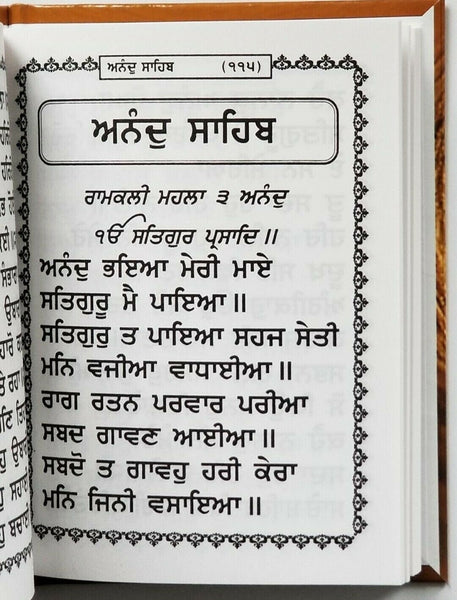 ਅਨੰਦੁ ਸਾਹਿਬ (੧੧੫)
ਅਨੰਦੁ ਸਾਹਿਬ
ਰਾਮਕਲੀ ਮਹਲਾ ੩ ਅਨੰਦੁ
ੴ ਸਤਿਗੁਰ ਪ੍ਰਸਾਦਿ॥
ਅਨੰਦੁ ਭਇਆ ਮੇਰੀ ਮਾਏ
ਸਤਿਗੁਰੂ ਮੈ ਪਾਇਆ॥
ਸਤਿਗੁਰੁ ਤ ਪਾਇਆ ਸਹਜ ਸੇਤੀ
ਮਨਿ ਵਜੀਆ ਵਾਧਾਈਆ॥
ਰਾਗ ਰਤਨ ਪਰਵਾਰ ਪਰੀਆ
ਸਬਦ ਗਾਵਣ ਆਈਆ॥
ਸਬਦੋ ਤ ਗਾਵਹੁ ਹਰੀ ਕੇਰਾ
ਮਨਿ ਜਿਨੀ ਵਸਾਇਆ॥